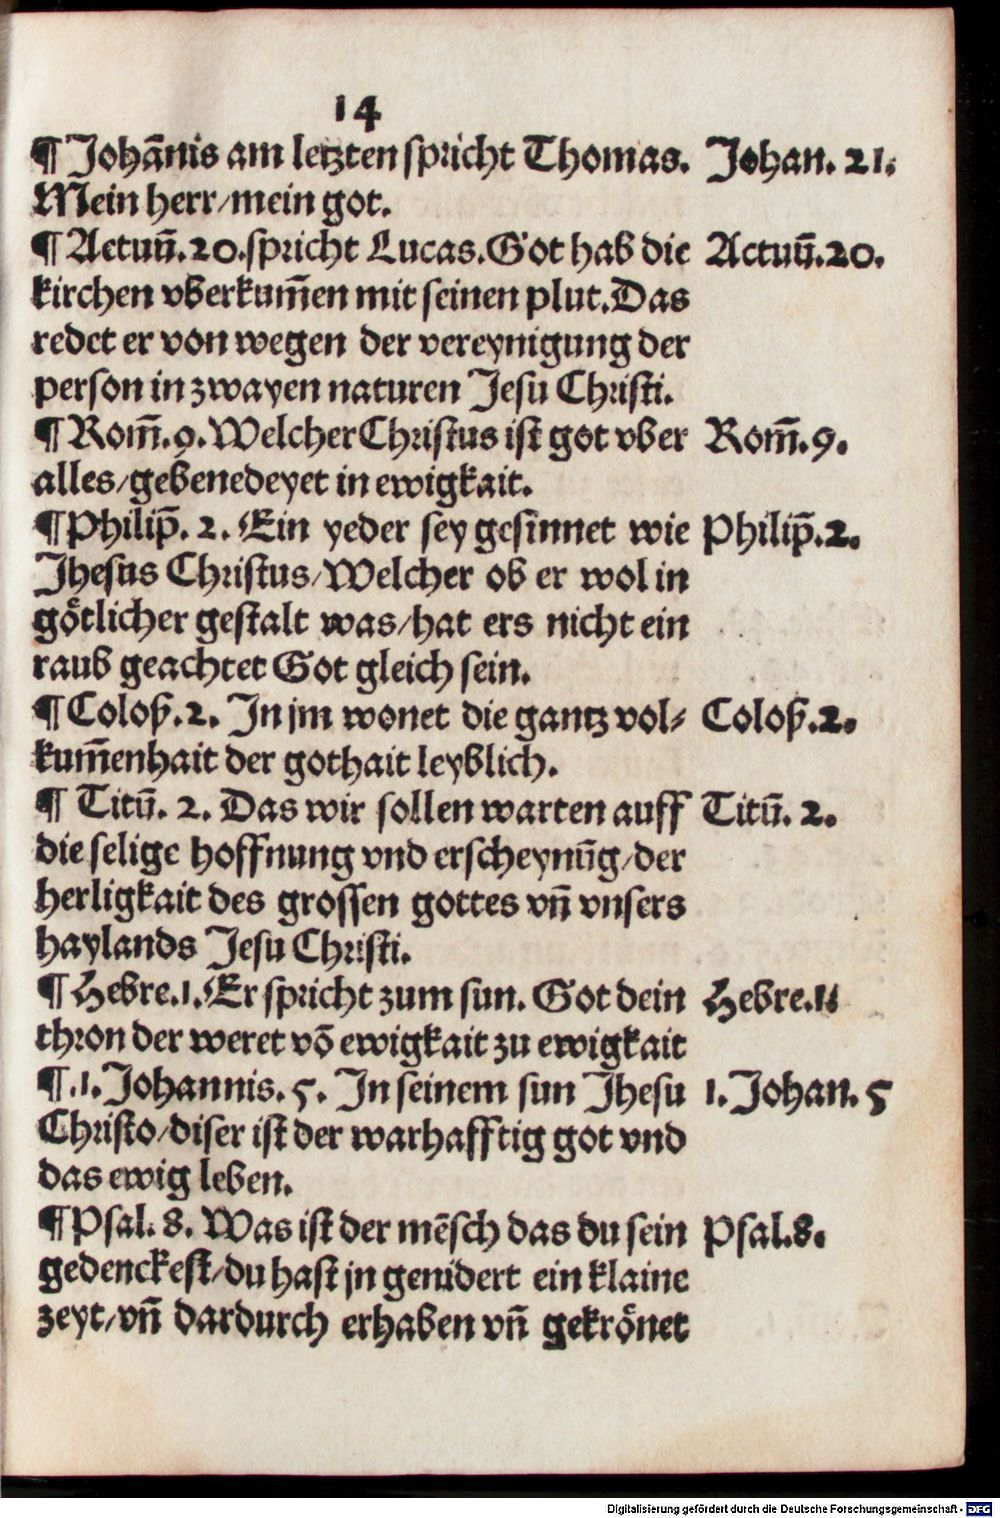 14
¶ Johānis am letzten spricht Thomas. Johan. 21.
Mein herr/mein got.
¶ Actuū.20.spricht Lucas.Got hab die Actuū.20.
kirchen vberkum̄en mit seinen plut.Das
redet er von wegen der vereynigung der
person in zwayen naturen Jesu Christi.
¶ Rom̄.9.Welcher Christus ist got vber Rom̄.9.
alles/gebenedeyet in ewigkait.
¶ Philip̄. 2. Ein yeder sey gesinnet wie Philip̄.2.
Jhesus Christus/Welcher ob er wol in
götlicher gestalt was/hat ers nicht ein
raub geachtet Got gleich sein.
¶ Coloß.2. In jm wonet die gantz vol- Coloß.2.
kum̄enhait der gothait leyblich.
¶ Titū. 2. Das wir sollen warten auff Titū. 2.
die selige hoffnung vnd erscheynūg/der
herligkait des grossen gottes vn̄ vnsers
haylands Jesu Christi.
¶ Hebre.1.Er spricht zum sun. Got dein Hebre.1.
thron der weret vō ewigkait zu ewigkait
¶.1.Johannis. 5. In seinem sun Jhesu 1. Johan. 5
Christo/diser ist der warhafftig got vnd
das ewig leben.
¶ Psal. 8. Was ist der mēsch das du sein Psal.8.
gedenckest/du hast jn genidert ein klaine
zeyt/vn̄ dardurch erhaben vn̄ gekrönet
Digitalisierung gefördert durch die Deutsche Forschungsgemeinschaft - DFG